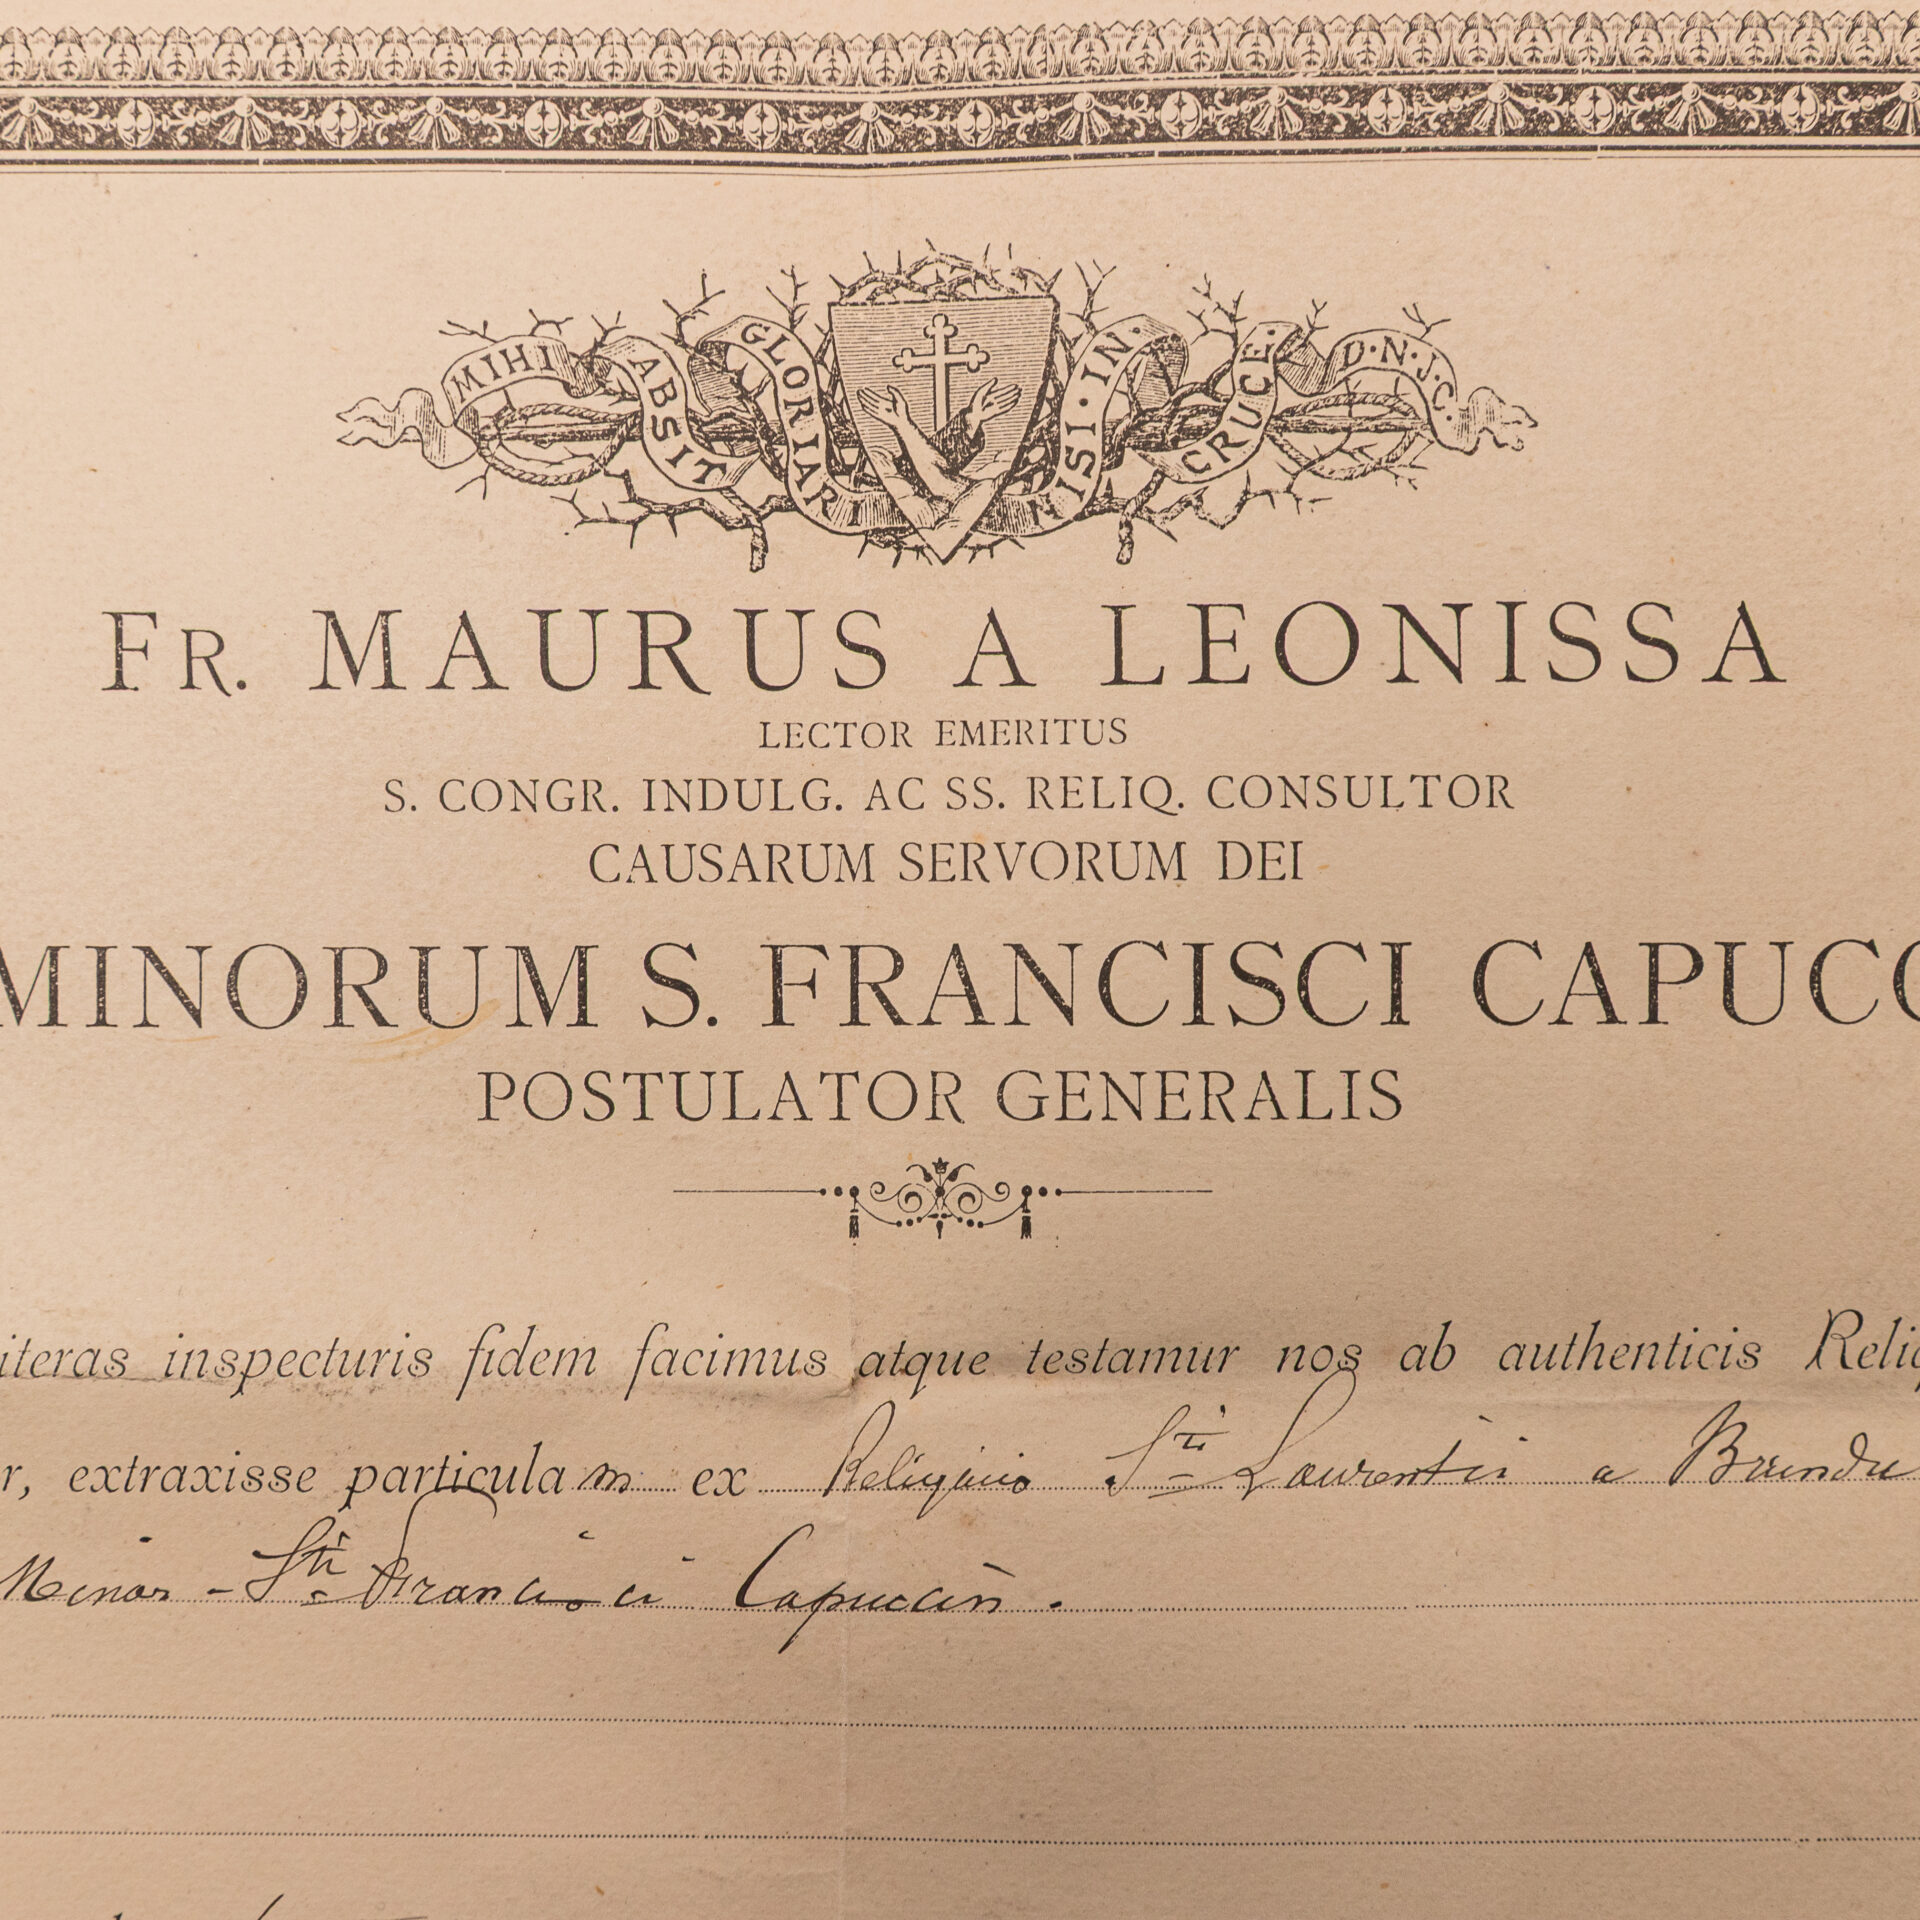 MIHI ABSIT GLORIARI NISI · IN · CRUCE · D · N · J · C ·
FR. MAURUS A LEONISSA
LECTOR EMERITUS
S. CONGR. INDULG. AC SS. RELIQ. CONSULTOR
CAUSARUM SERVORUM DEI
MINORUM S. FRANCISCI CAPUCC
POSTULATOR GENERALIS
iteras inspecturis fidem facimus atque testamur nos ab authenticis Reliq
r, extraxisse particulam ex Reliquiis Sti Laurentii a Brundu
Minor - Sti Francisci Capuccin .